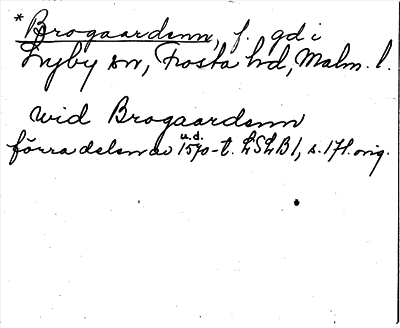 *Brogaardsnn, f. gd i
Lyby sn, Frosta hd, Malm. l.
wid Brogaardsnn
förra delen av 1570-t. LSLB1, s. 171. orig.
u.d.